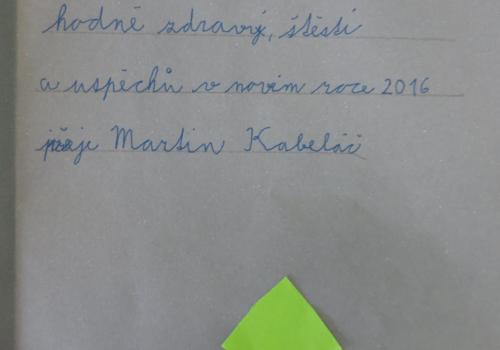 hodně zdravý, štěstí
a uspěchů v novém roce 2016
přeje Martin Kabeláč